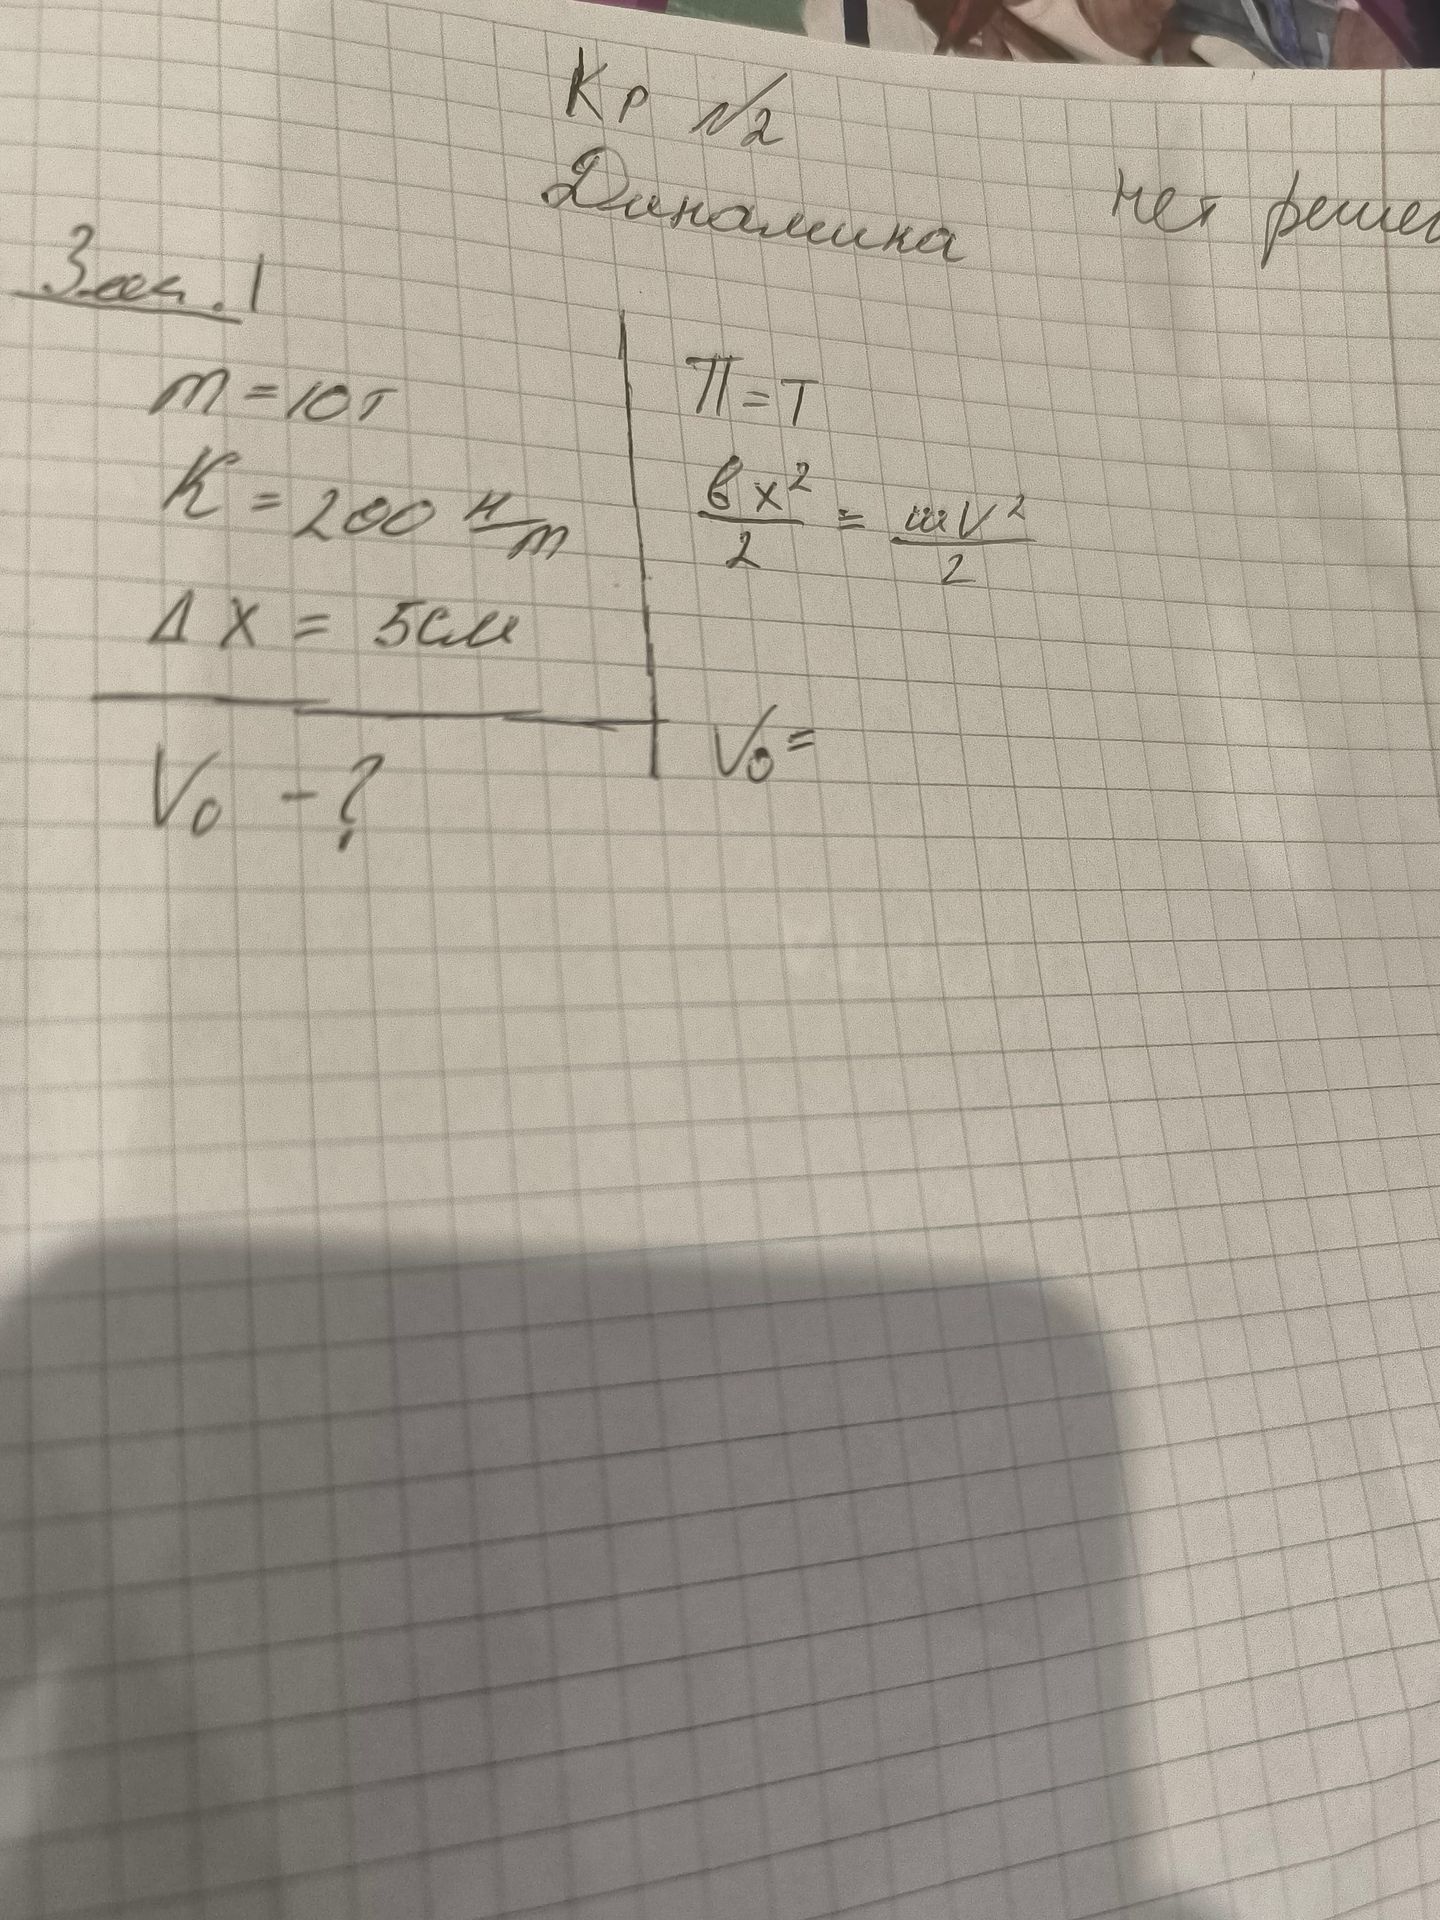 Кр №2
Динамика
нет решен
Зад. 1
m = 10т
K = 200 н/m
Δ X = 5см
V₀ - ?
П = T
вx²/2 = mV²/2
V₀ =